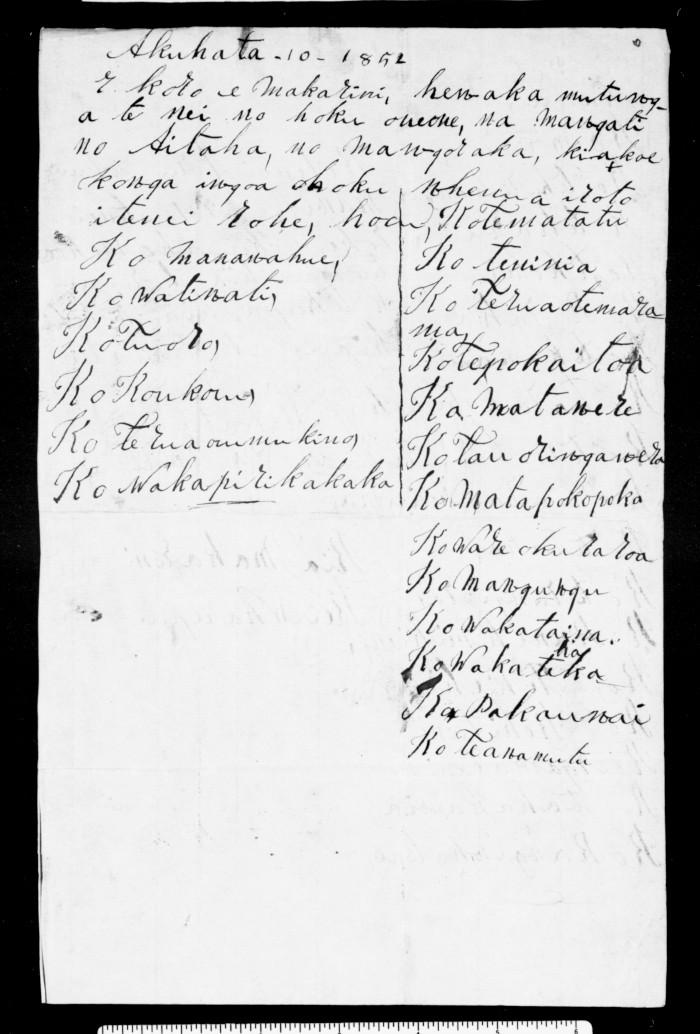 Akuhata - 10 - 1852
E koro e Makarini, hewaka mutunga
a te nei no hoku oneone, na Mangati
no Aitaha, no Mangoraka, kia koe
konga ingoa ohoku whenua iroto
itenei rohe, hoa,
Ko Manawahue,
Ko Watiwati,
Ko Tuoro,
Ko Koukou,
Ko teruaoumukino,
Ko Wakapirikakaka
Kotematatu
Ko teninia
Ko Teruaotemara
ma,
Kotepokaitoa
Ka Matawere
Kotau oringawera
Ko Matapokopoka
Ko Ware okuraroa
Ko Mangungu
Ko Wakataina.
Ko Waka tehaka
Ko Pakauwai
Ko Teawamutu